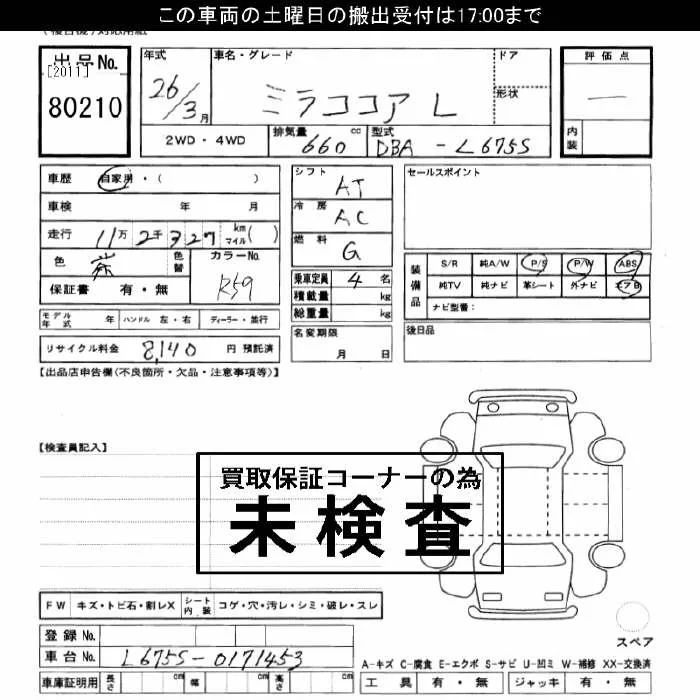 この車両の土曜日の搬出受付は17:00まで
出品No.
[2011]
80210
年式
26/3月
車名・グレード
ミラココア L
ドア
形状
評価点
—
内装
2WD・4WD
排気量
660 cc
型式
DBA-L675S
車歴 自家用・( )
車検 年 月
走行 11万2千327 km マイル( )
色 茶
色替
カラーNo.
R59
保証書 有・無
シフト
AT
冷房
AC
燃料
G
乗車定員 4 名
積載量 kg
総重量 kg
セールスポイント
装備品
S/R 純A/W P/S P/W ABS
純TV 純ナビ 革シート 外ナビ エアB
ナビ型番:
モデル年式 年 ハンドル 左・右 ディーラー・並行
名変期限
月 日
後日品
リサイクル料金 8,140 円 預託済
【出品店申告欄(不良箇所・欠品・注意事項等)】
【検査員記入】
買取保証コーナーの為
未検査
FW キズ・トビ石・割レX シート内装 コゲ・穴・汚レ・シミ・破レ・スレ
登録No.
車台No. L675S-0171453
車庫証明用 長さ cm 幅 cm 高さ cm
スペア
A-キズ C-腐食 E-エクボ S-サビ U-凹ミ W-補修 XX-交換済
工具 有・無 ジャッキ 有・無